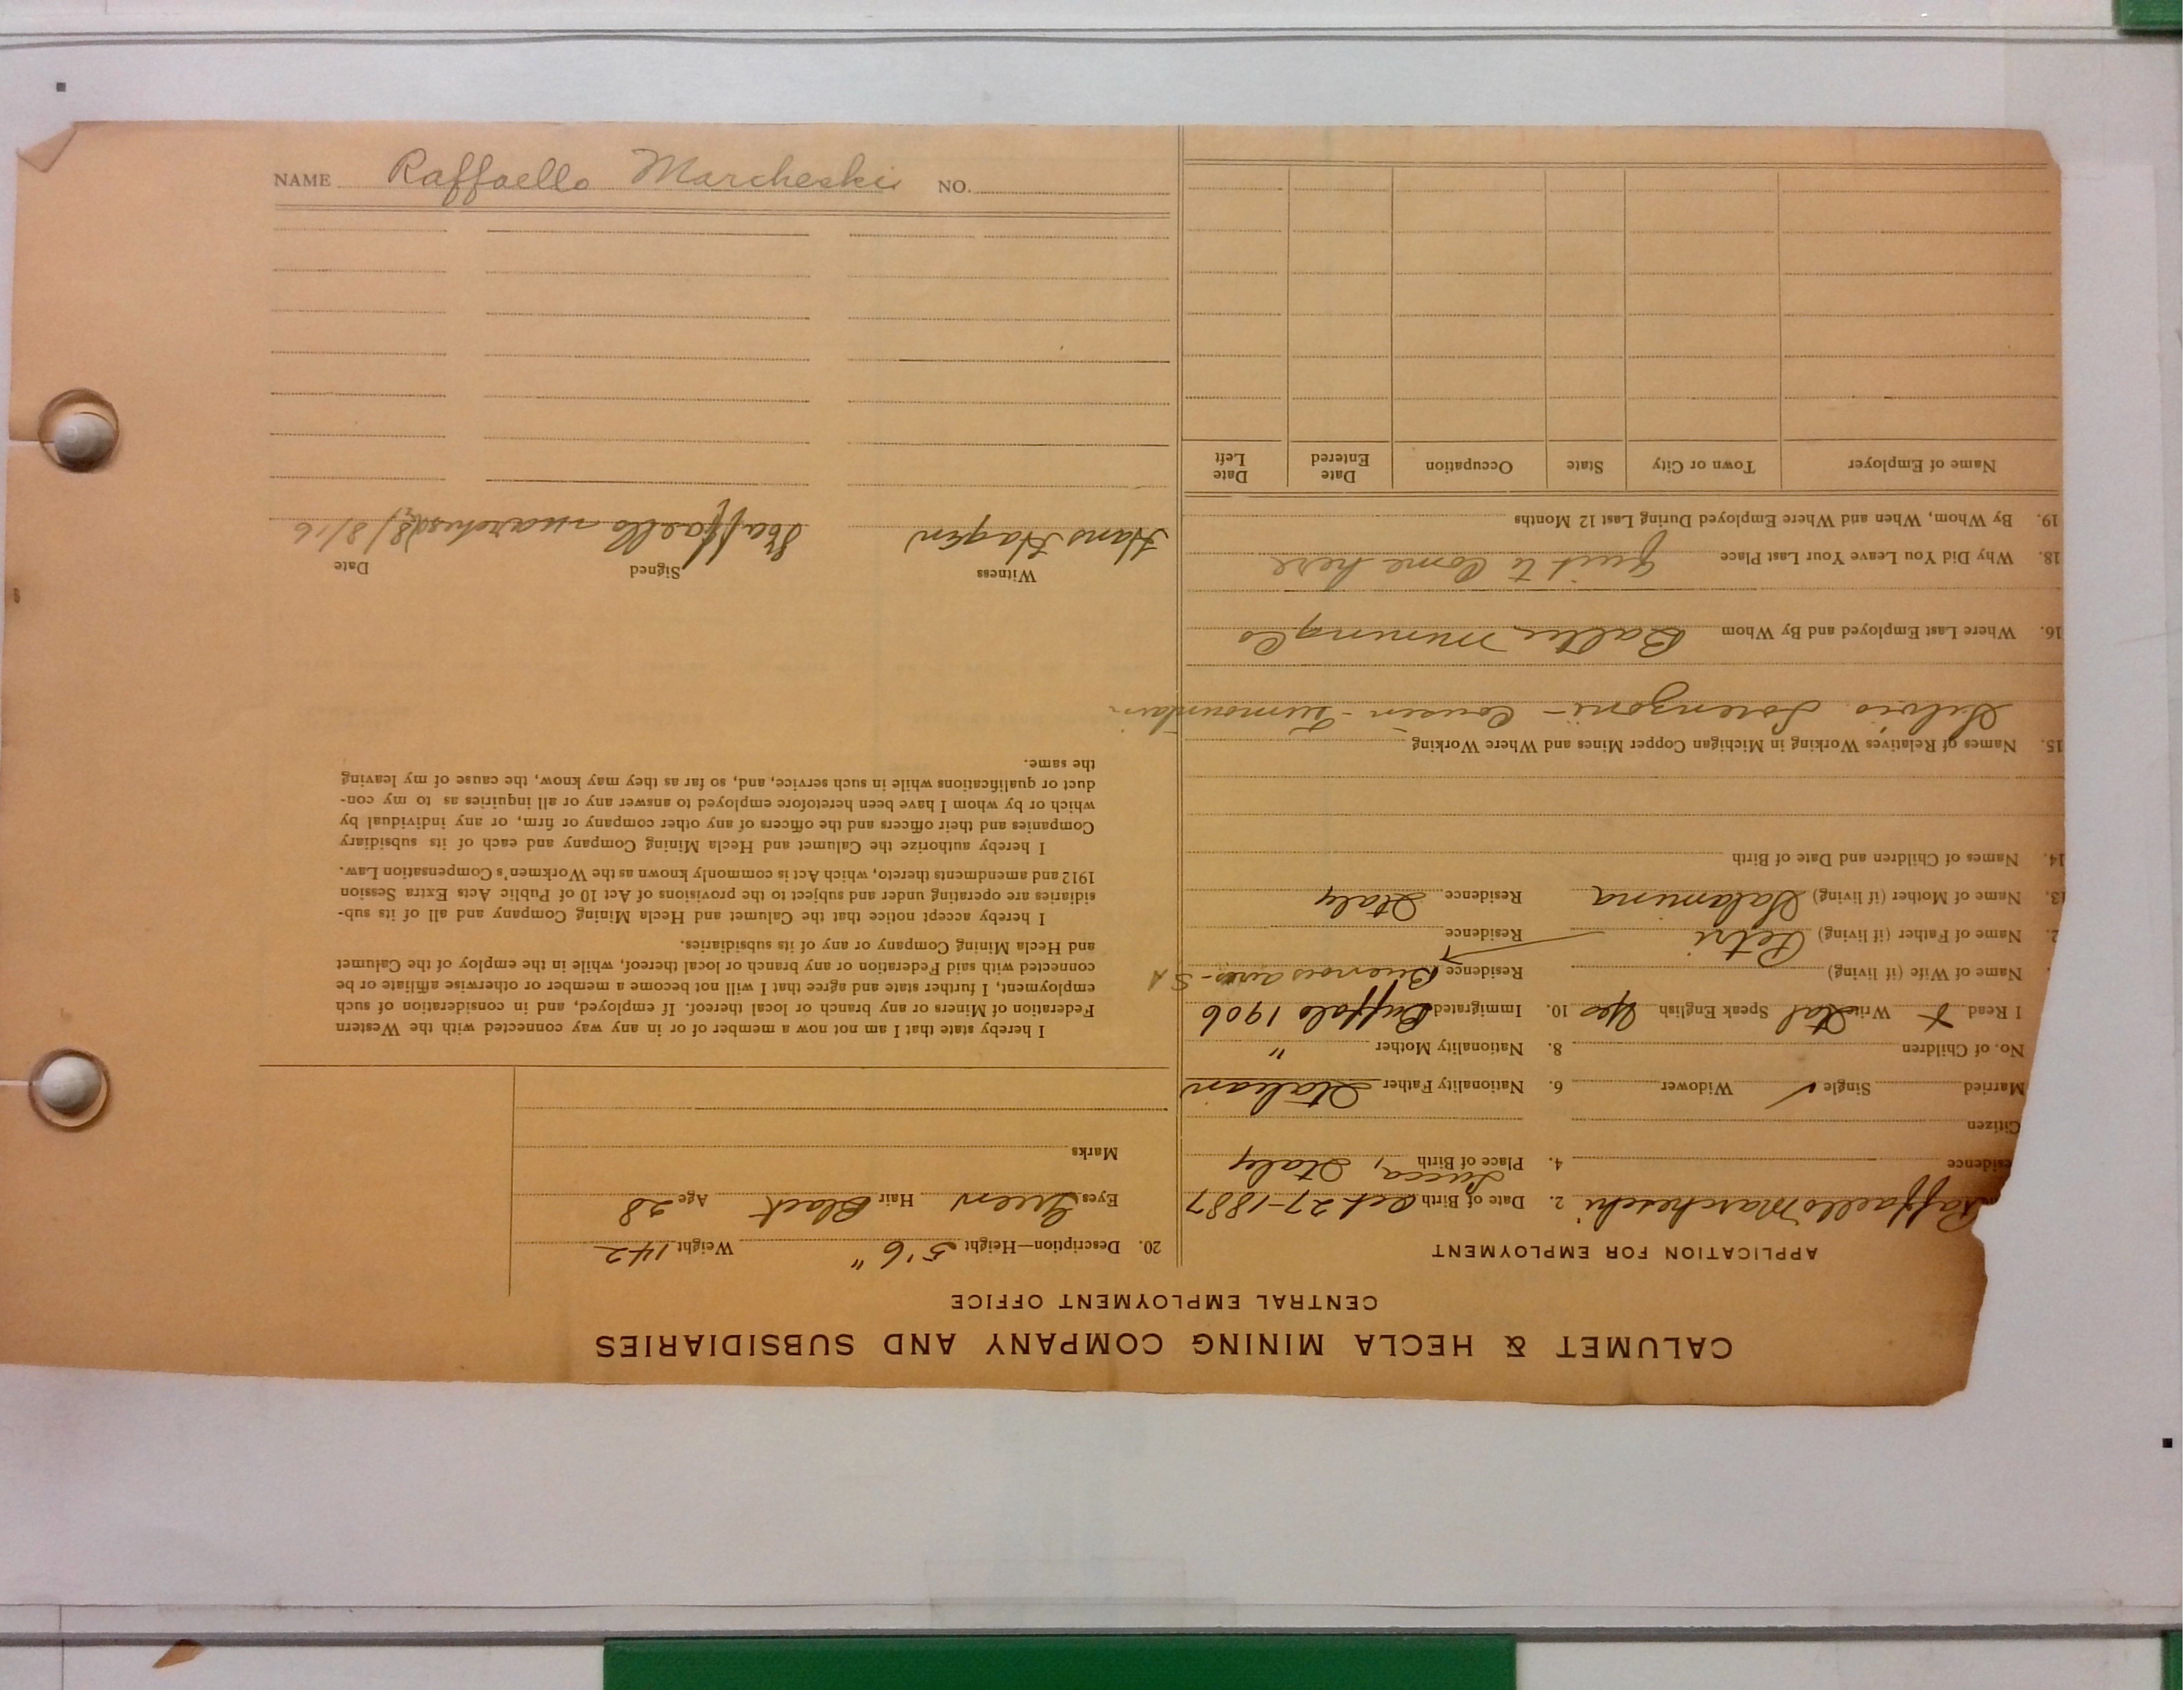 CALUMET & HECLA MINING COMPANY AND SUBSIDIARIES
CENTRAL EMPLOYMENT OFFICE
APPLICATION FOR EMPLOYMENT
Raffaello Marcheschi 2. Date of Birth Oct 27-1887
esidence 4. Place of Birth Lucca, Italy
Citizen
Married Single ✓ Widower 6. Nationality Father Italian
No. of Children 8. Nationality Mother "
I Read X Write Ital Speak English Yes 10. Immigrated Buffalo 1906
Name of Wife (if living) Residence Buenos aires - S A
2. Name of Father (if living) Petri Residence
13. Name of Mother (if living) Residence Italy
14. Names of Children and Date of Birth
15. Names of Relatives Working in Michigan Copper Mines and Where Working
Silvio Lorenzoni - Cousin - Trimountain
16. Where Last Employed and By Whom Baltic Mining Co
18. Why Did You Leave Your Last Place Quit to Come here
19. By Whom, When and Where Employed During Last 12 Months
Name of Employer Town or City State Occupation Date Entered Date Left
20. Description—Height 5'6" Weight 142
Eyes Green Hair Black Age 28
Marks
I hereby state that I am not now a member of or in any way connected with the Western
Federation of Miners or any branch or local thereof. If employed, and in consideration of such
employment, I further state and agree that I will not become a member or otherwise affiliate or be
connected with said Federation or any branch or local thereof, while in the employ of the Calumet
and Hecla Mining Company or any of its subsidiaries.
I hereby accept notice that the Calumet and Hecla Mining Company and all of its sub-
sidiaries are operating under and subject to the provisions of Act 10 of Public Acts Extra Session
1912 and amendments thereto, which Act is commonly known as the Workmen's Compensation Law.
I hereby authorize the Calumet and Hecla Mining Company and each of its subsidiary
Companies and their officers and the officers of any other company or firm, or any individual by
which or by whom I have been heretofore employed to answer any or all inquiries as to my con-
duct or qualifications while in such service, and, so far as they may know, the cause of my leaving
the same.
Witness Signed Date
Hans Hagen Raffaello 8/8/16
NAME Raffaello Marcheskie NO.